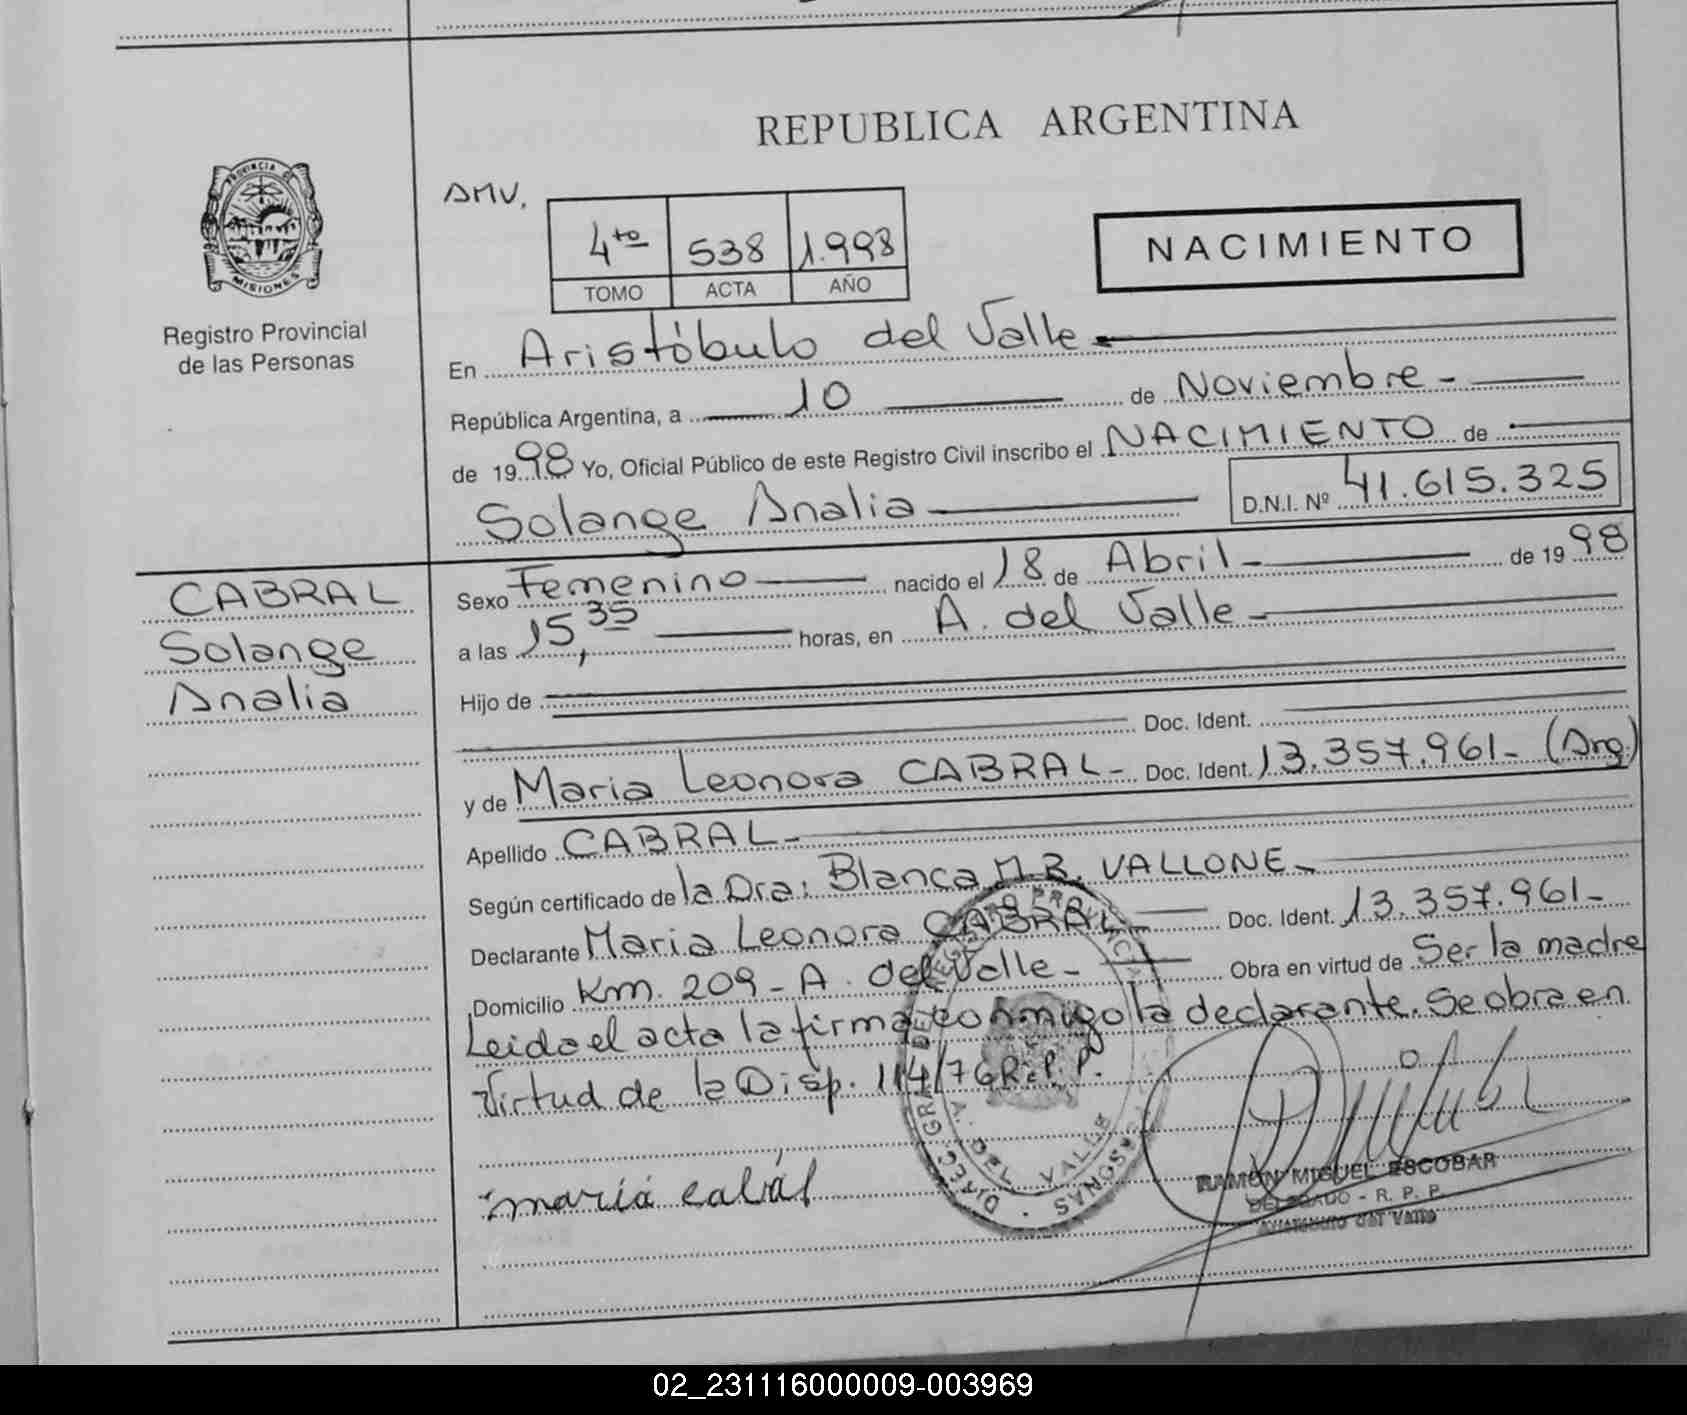 REPUBLICA ARGENTINA
PROVINCIA DE
MISIONES
Registro Provincial
de las Personas
AMV.
4to 538 1.998
TOMO ACTA AÑO
NACIMIENTO
En Aristóbulo del Valle
República Argentina, a 10 de Noviembre -
de 1998 Yo, Oficial Público de este Registro Civil inscribo el NACIMIENTO de
Solange Analia D.N.I. Nº 41.615.325
CABRAL
Solange
Analia
Sexo Femenino nacido el 18 de Abril - de 1998
a las 15,35 horas, en A. del Valle -
Hijo de
Doc. Ident.
y de Maria Leonora CABRAL - Doc. Ident. 13.357.961 - (Arg.)
Apellido CABRAL -
Según certificado de la Dra: Blanca M.B. VALLONE -
Declarante Maria Leonora CABRAL - Doc. Ident. 13.357.961 -
Domicilio Km. 209 - A. del Valle - Obra en virtud de Ser la madre
Leida el acta la firma conmigo la declarante. Se obra en
virtud de la Disp. 114/76 R.P.P.
maria cabral
DIREC. GRAL. DEL REGISTRO PROVINCIAL PERSONAS
A. DEL VALLE
RAMON MIGUEL ESCOBAR
DELEGADO - R. P. P.
Aristobulo del Valle
02_231116000009-003969